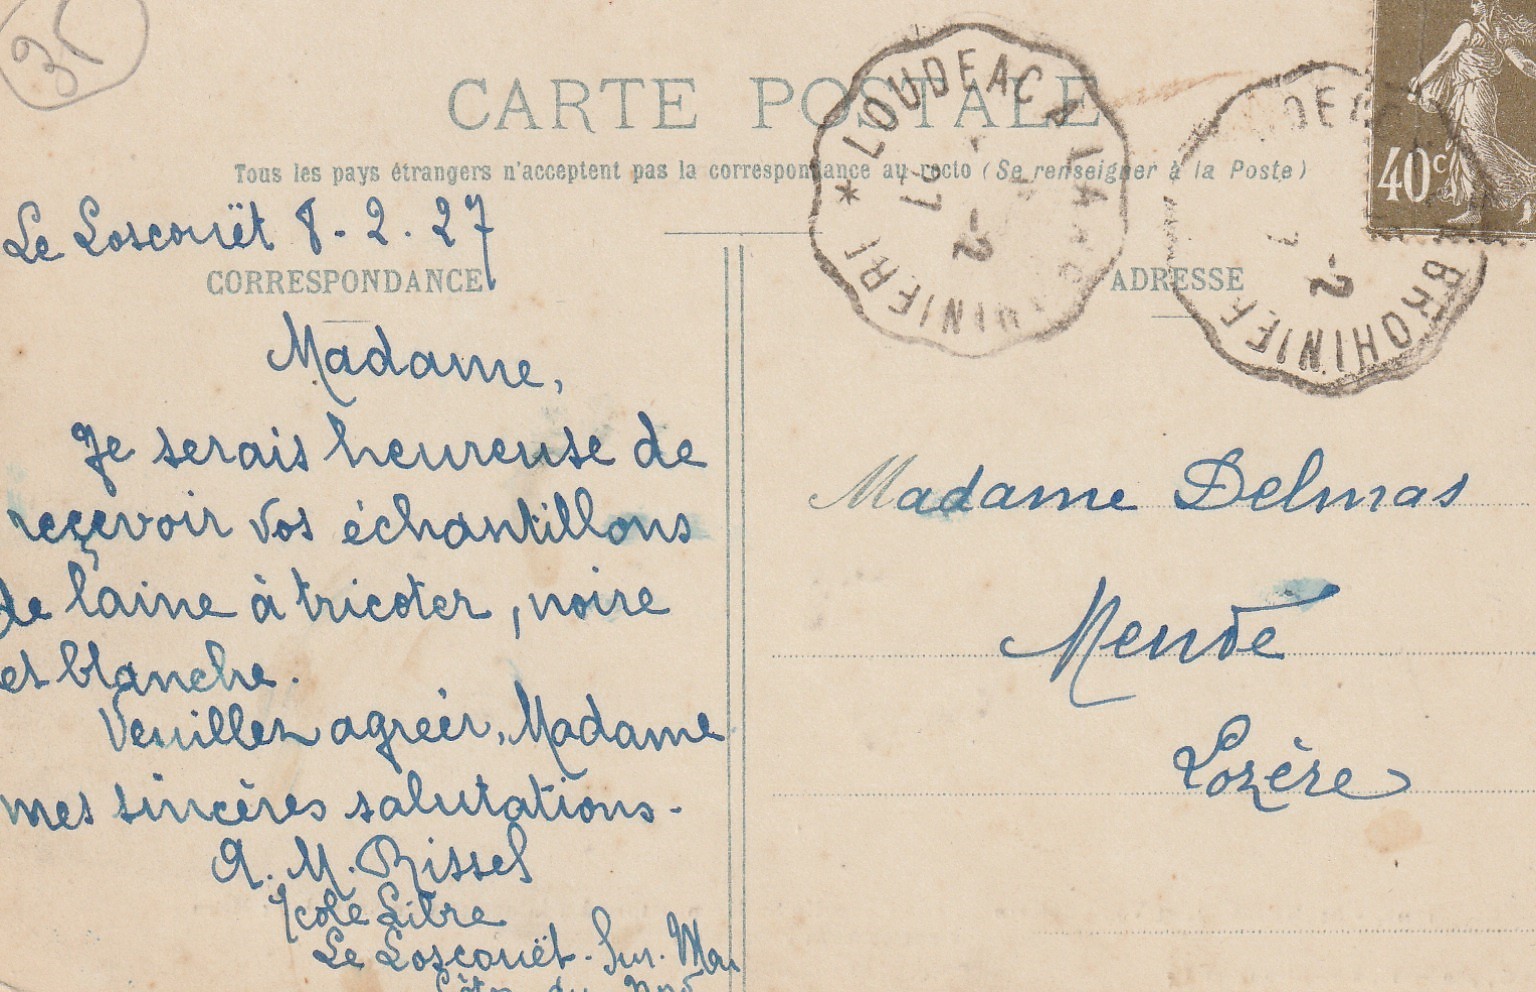 35
CARTE POSTALE
Tous les pays étrangers n'acceptent pas la correspondance au recto (Se renseigner à la Poste)
LOUDEAC A LA BROHINIERE *
-2
27
BROHINIERE
-2
40c
Le Loscouët 8-2.27
CORRESPONDANCE
Madame,
Je serais heureuse de
reçevoir vos échantillons
de laine à tricoter, noire
et blanche.
Veuillez agréer, Madame
mes sincères salutations-
A. M. Rissel
Ecole Libre
Le Loscouët-Sur-Meu
Côtes du Nord
ADRESSE
Madame Delmas
Mende
Lozère